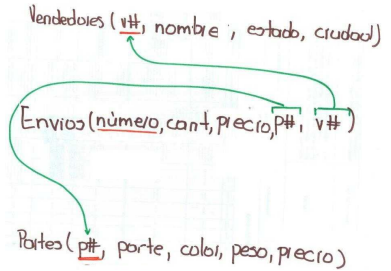 Vendedores (v#, nombre, estado, ciudad)
Envios(número, cant, precio, p#, v#)
Partes(p#, parte, color, peso, precio)